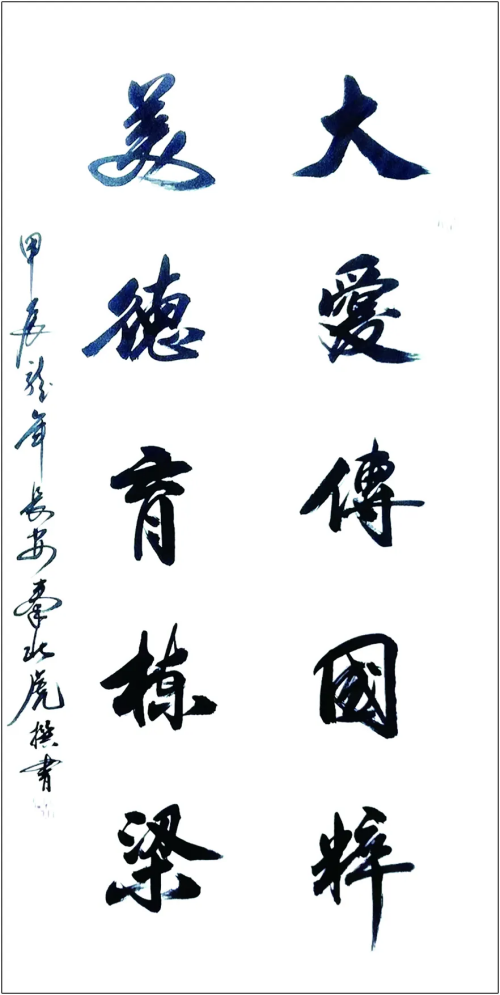 大愛傳國粹
美德育棟梁
甲辰龍年長安秦北虎撰書